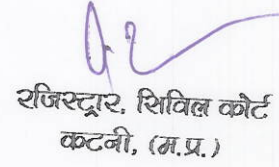 रजिस्ट्रार, सिविल कोर्ट
कटनी, (म.प्र.)